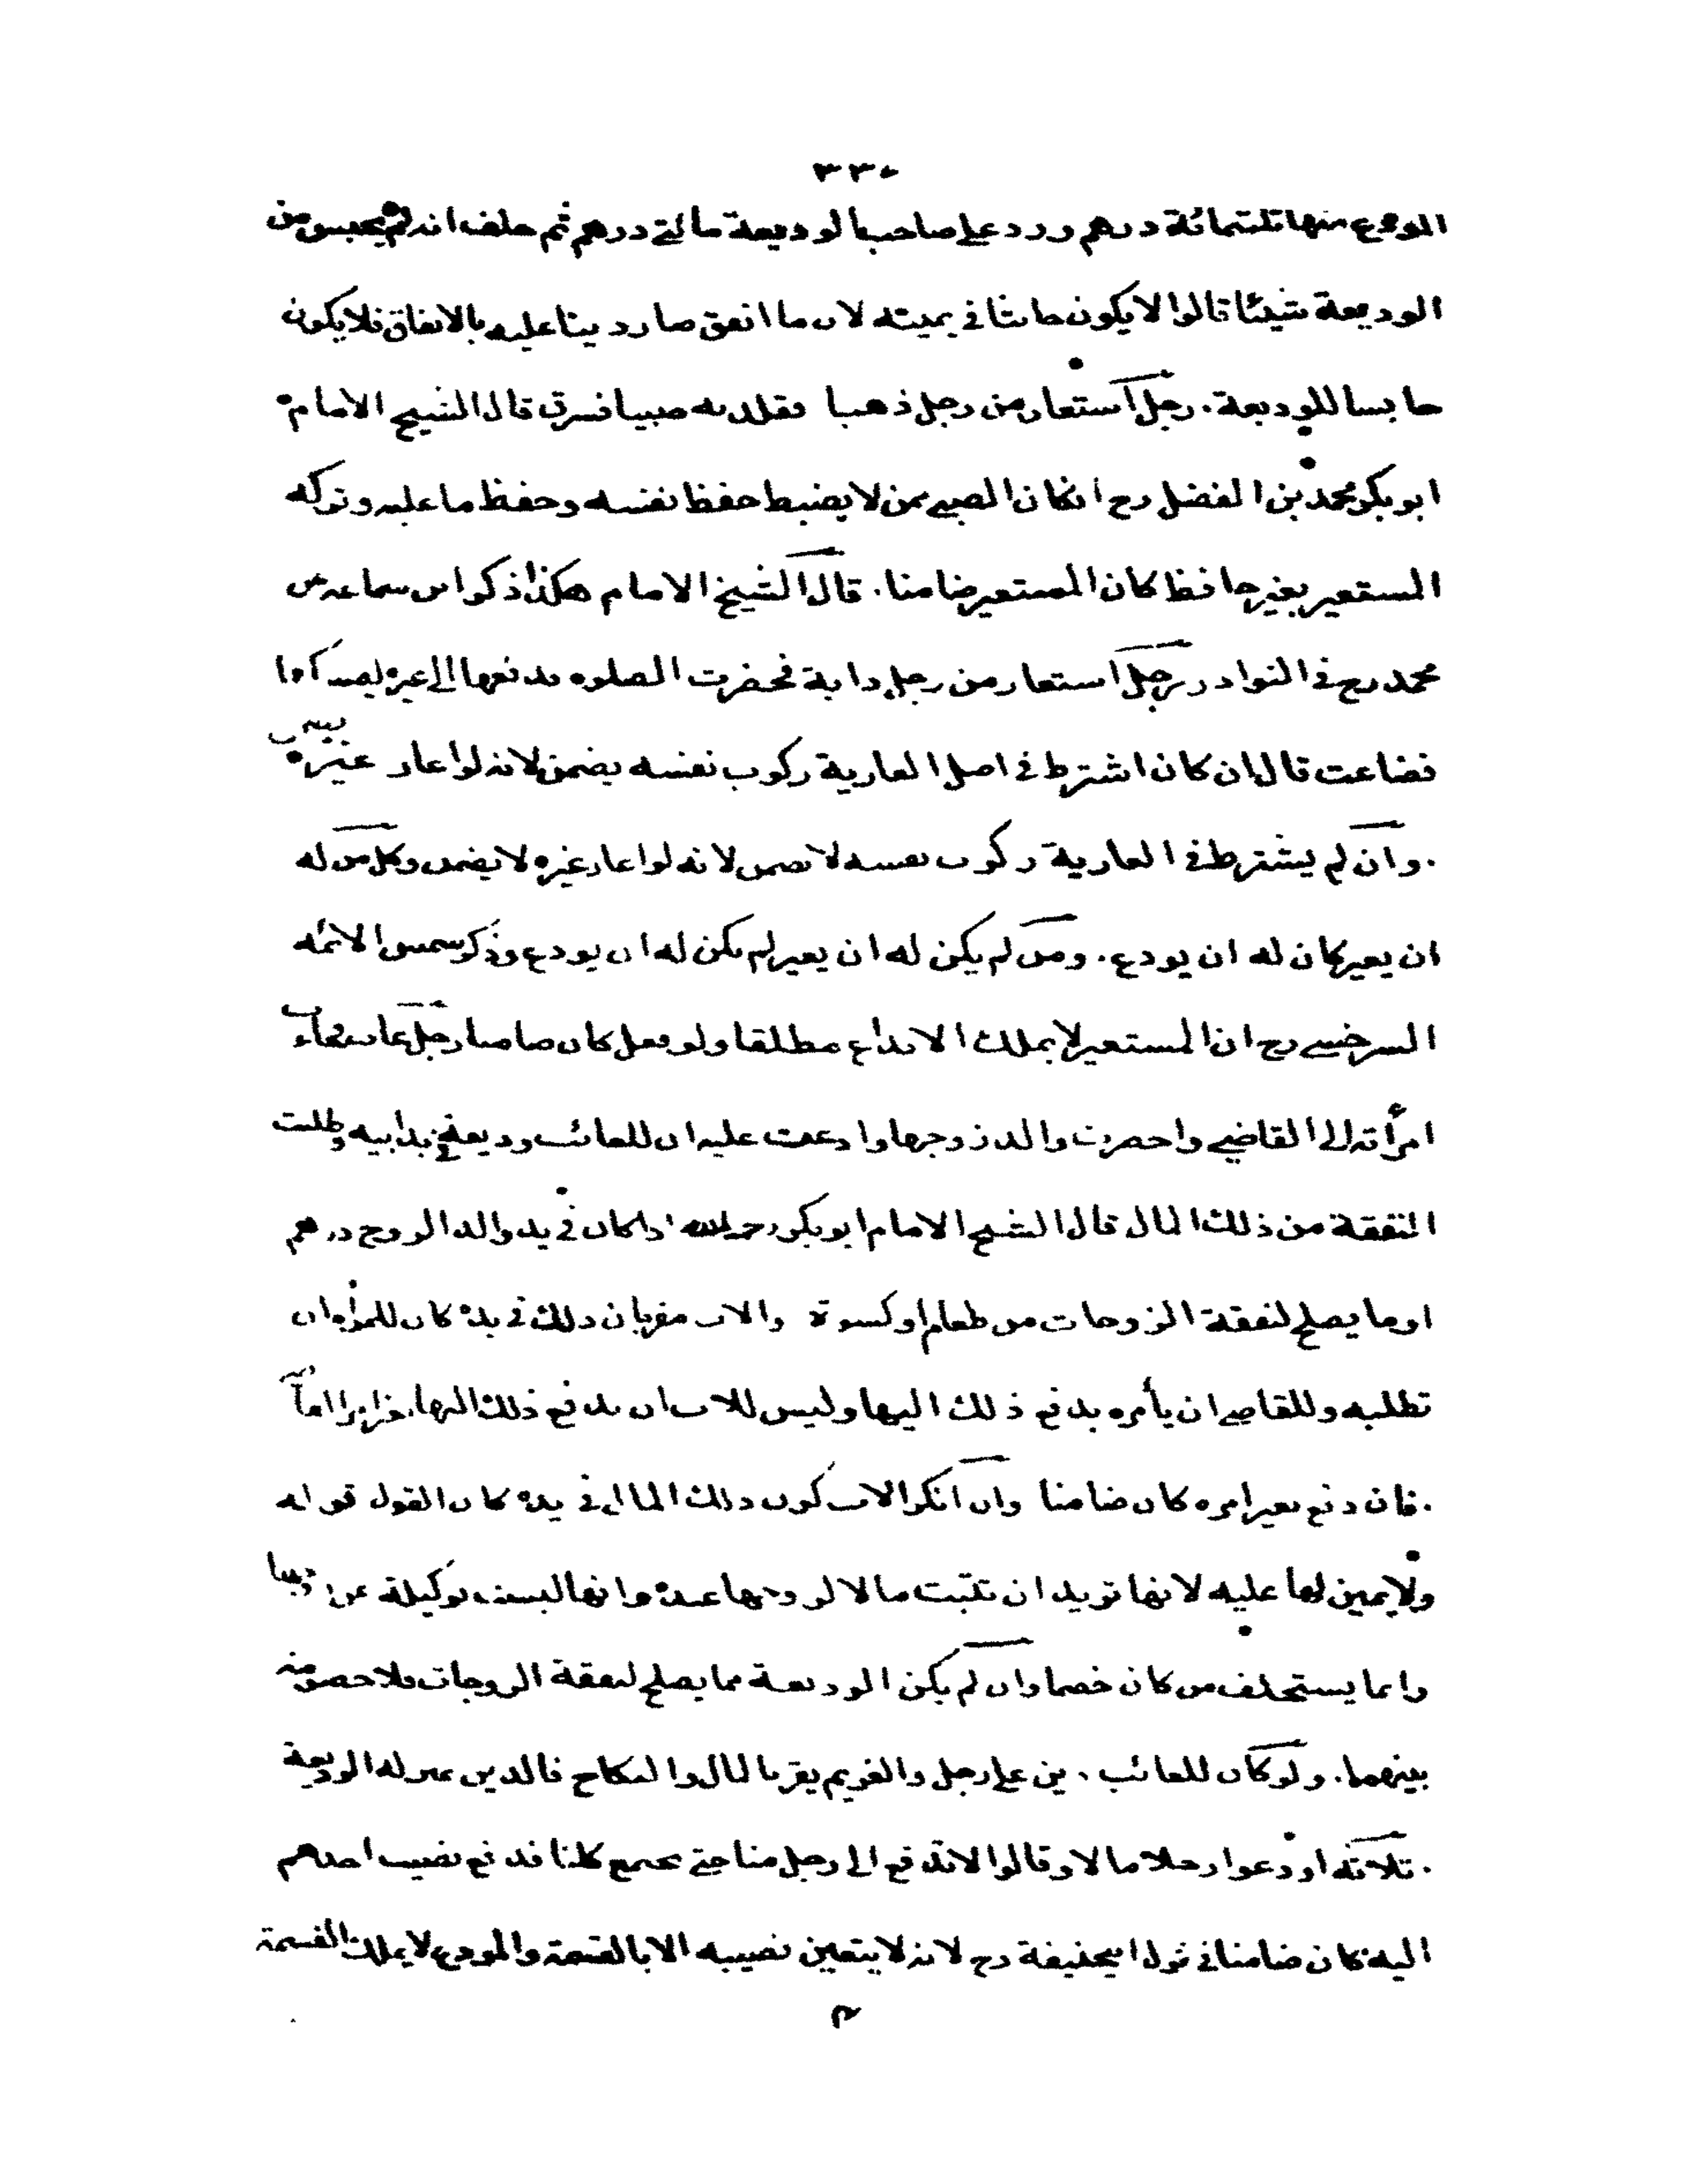 ٣٣٠
المودع منها ثلثمائة درهم ورد على صاحب الوديعة مائتي درهم ثم حلف انه لم يحبس من
الوديعة شيئا قالوا لا يكون حانثا في يمينه لان ما انفق صار دينا عليه بالانفاق فلا يكون
حابسا للوديعة. رجل استعار من رجل ذهبا فقلده صبيا فسرق قال الشيخ الامام
ابو بكر محمد بن الفضل رح ان كان الصبي ممن لا يضبط حفظ نفسه وحفظ ما عليه وتركه
المستعير بغير حافظ كان المستعير ضامنا. قال الشيخ الامام هكذا ذكر ابن سماعه عن
محمد رح في النوادر رجل استعار من رجل دابة فحضرت الصلوه فدفعها الى غيره ليمسكها
فضاعت قال ان كان اشترط في اصل العارية ركوب نفسه يضمن لانه لو اعار غيره يضمن
. وان لم يشترط في العارية ركوب نفسه لا يضمن لانه لو اعار غيره لا يضمن وكل من له
ان يعير كان له ان يودع. ومن لم يكن له ان يعير لم يكن له ان يودع وذكر شمس الائمه
السرخسي رح ان المستعير لا يملك الايداع مطلقا ولو فعل كان ضامنا رجل غاب فجاءت
امرأته الى القاضي واحضرت والد زوجها وادعت عليه ان للغائب وديعة في يد ابيه وطلبت
النفقة من ذلك المال قال الشيخ الامام ابو بكر رحمه الله اذا كان في يد والد الزوج دراهم
او ما يصلح لنفقة الزوجات من طعام او كسوة والاب مقر بان ذلك في يده كان للمرأة ان
تطلبه وللقاضي ان يأمره بدفع ذلك اليها وليس للاب ان يدفع ذلك اليها بغير امر القاضي
. فان دفع بغير امره كان ضامنا وان انكر الاب كون ذلك المال في يده كان القول قوله
ولا يمين لها عليه لانها تريد ان تثبت مالا لزوجها عنده وانها ليست بوكيلة عن زوجها
وانما يستحلف من كان خصما وان لم يكن الوديعة مما يصلح لنفقة الزوجات فلا خصومة
بينهما. ولو كان للغائب دين على رجل والغريم يقر بالمال والنكاح فالدين بمنزلة الوديعة
. ثلاثة اودعوا رجلا مالا وقالوا لا تدفع الى رجل منا حتى نجتمع كلنا فدفع نصيب احدهم
اليه كان ضامنا في قول ابي حنيفة رح لانه لا يتعين نصيبه الا بالقسمة والمودع لا يملك القسمة
م